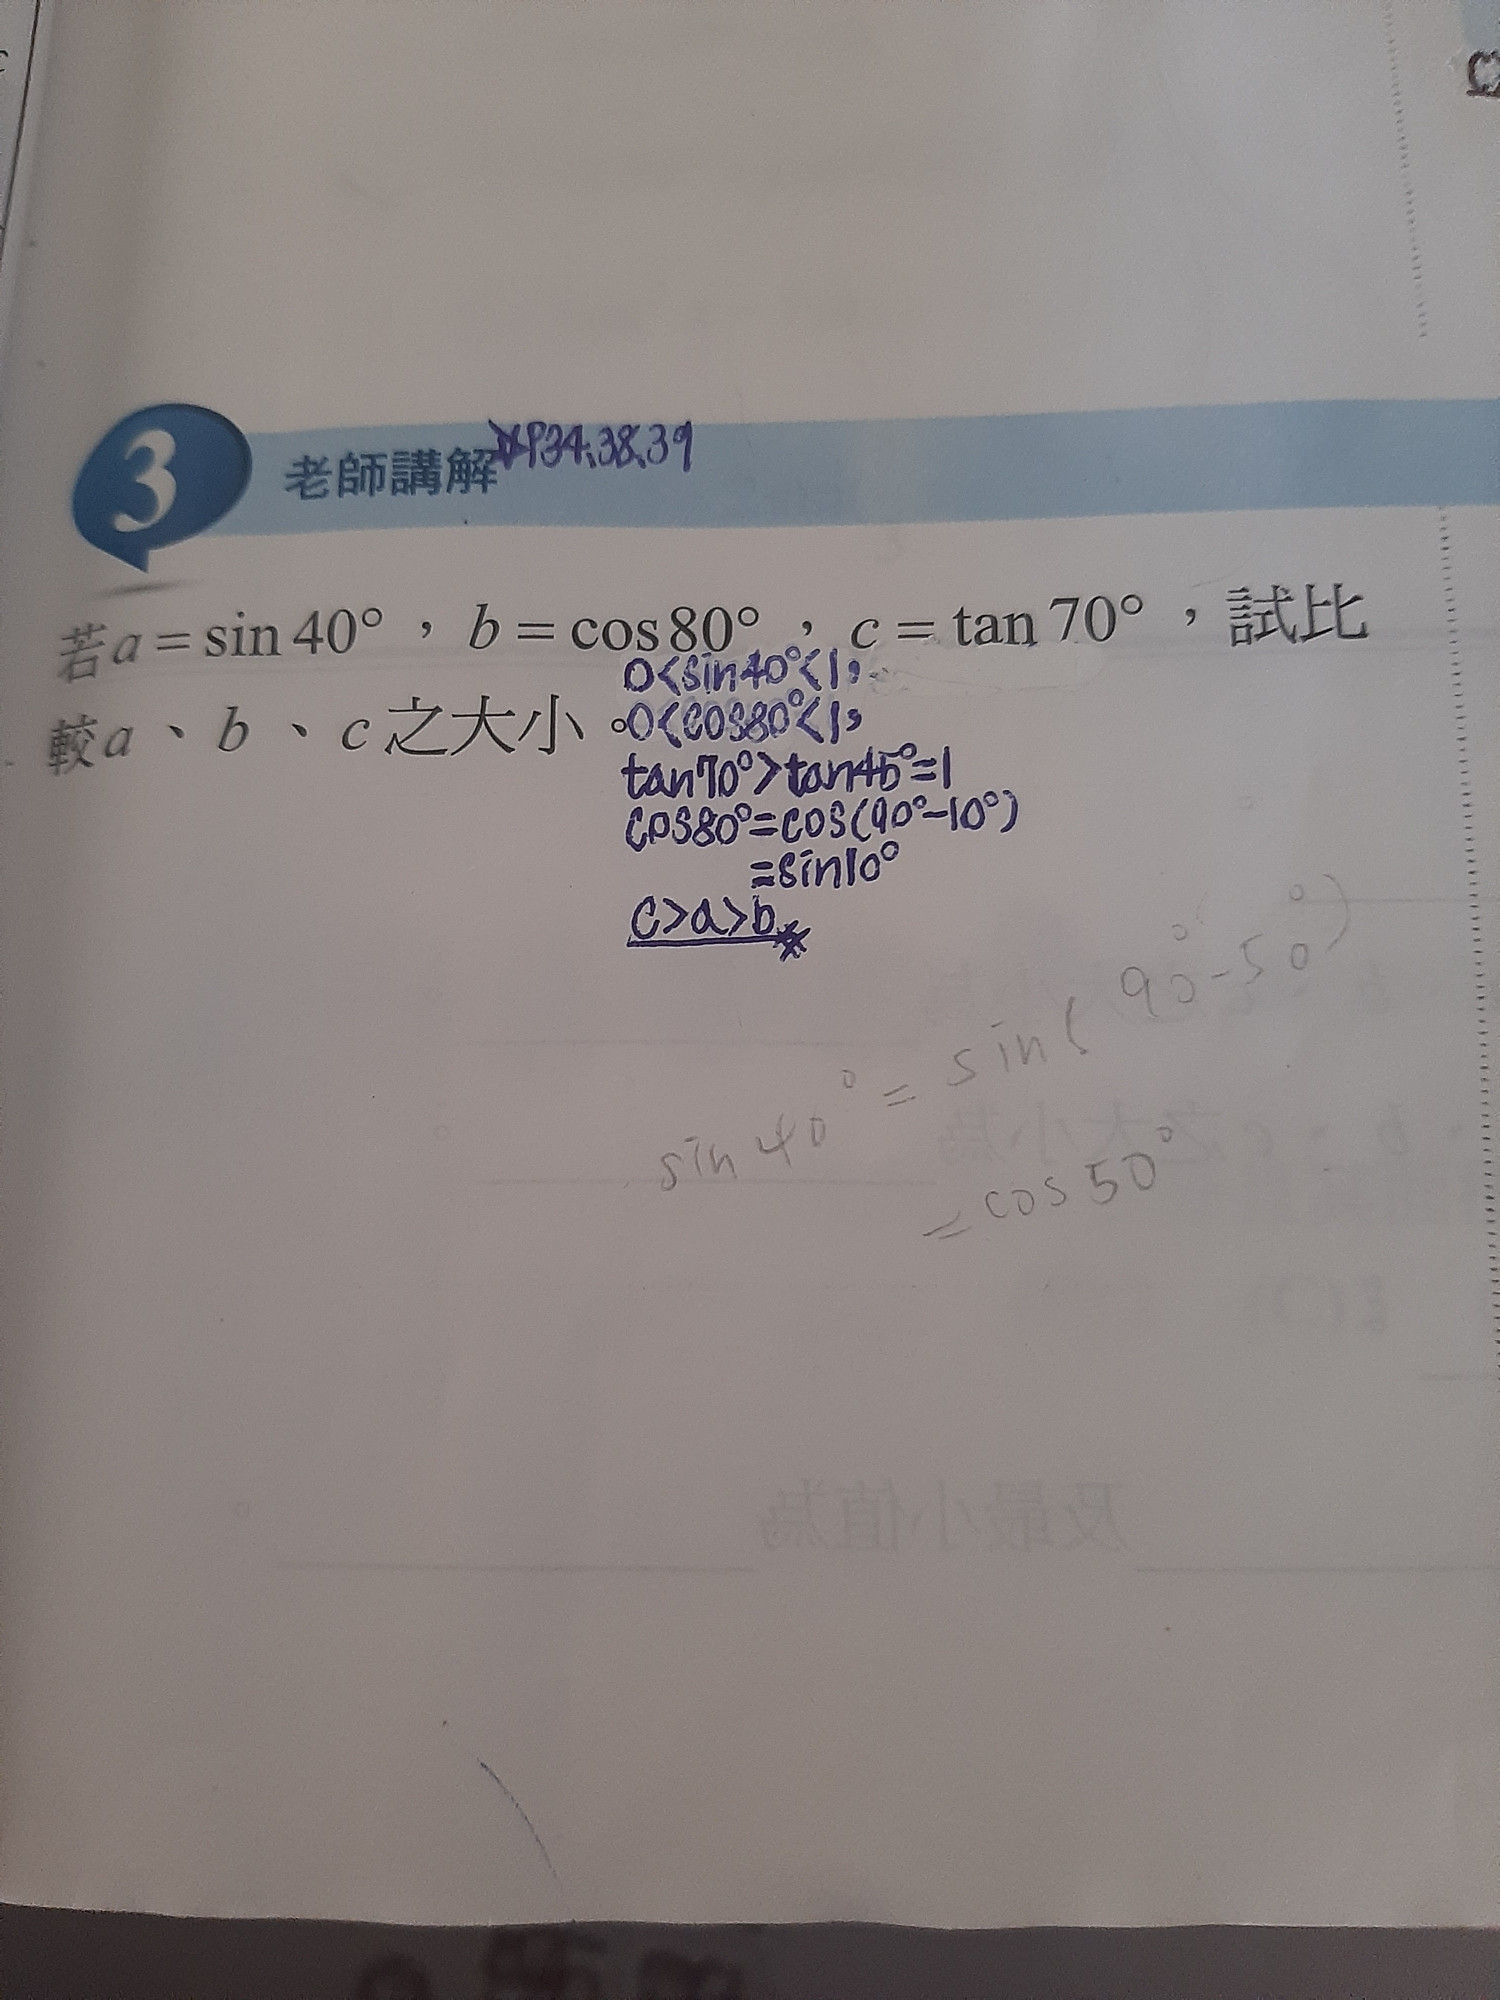 3 老師講解 P34、38、39
若a = sin 40°，b = cos 80°，c = tan 70°，試比
較a、b、c之大小。
0<sin40°<1，
0<cos80°<1，
tan70°>tan45°=1
cos80°=cos(90°-10°)
=sin10°
c>a>b
sin40° = sin(90°-50°)
= cos50°